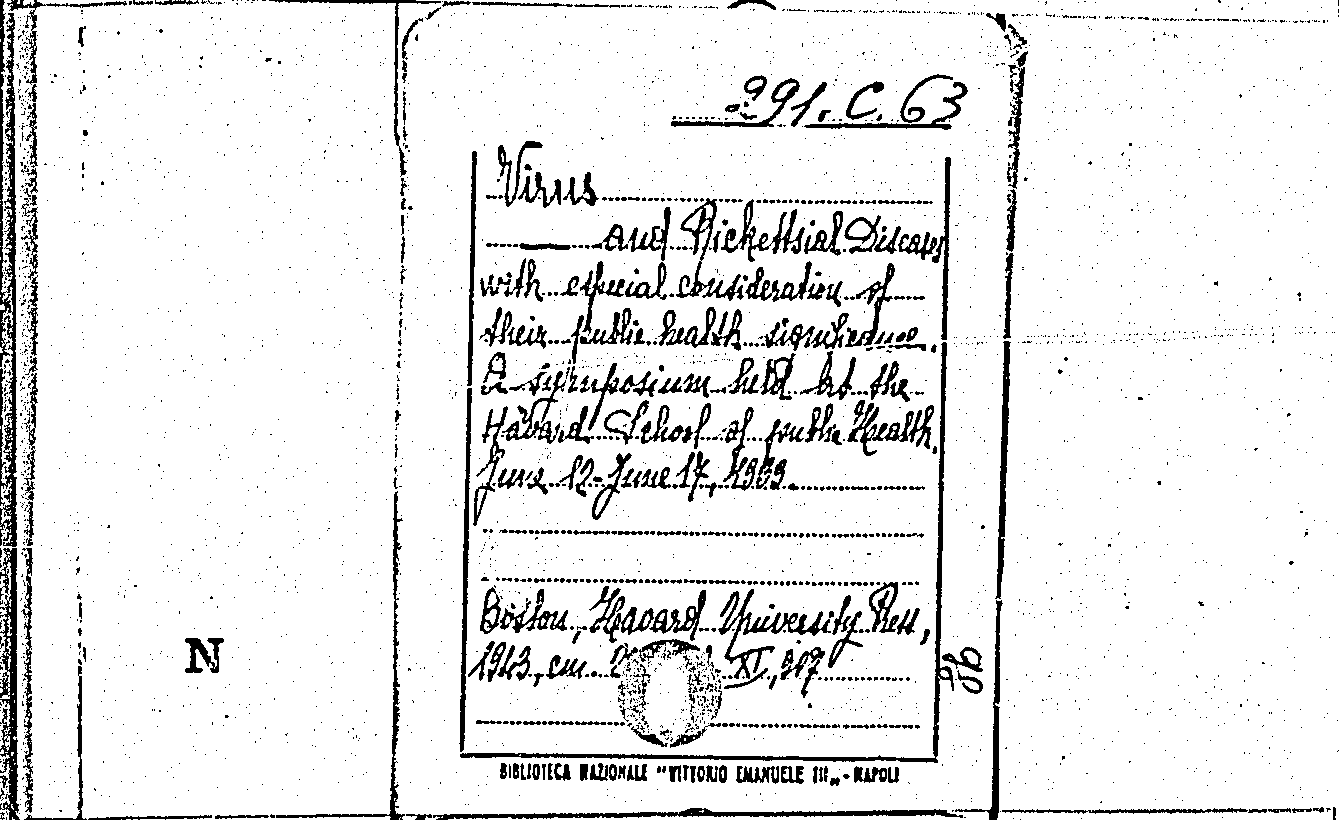 991.C.63
Virus
— and Rickettsial Diseases
with especial consideration of
their public health significance.
A symposium held at the
Havard School of public Health,
June 12-June 17, 1939.
Boston, Havard University Press,
1943, cm. XI, 907
N
BIBLIOTECA NAZIONALE "VITTORIO EMANUELE III„ - NAPOLI